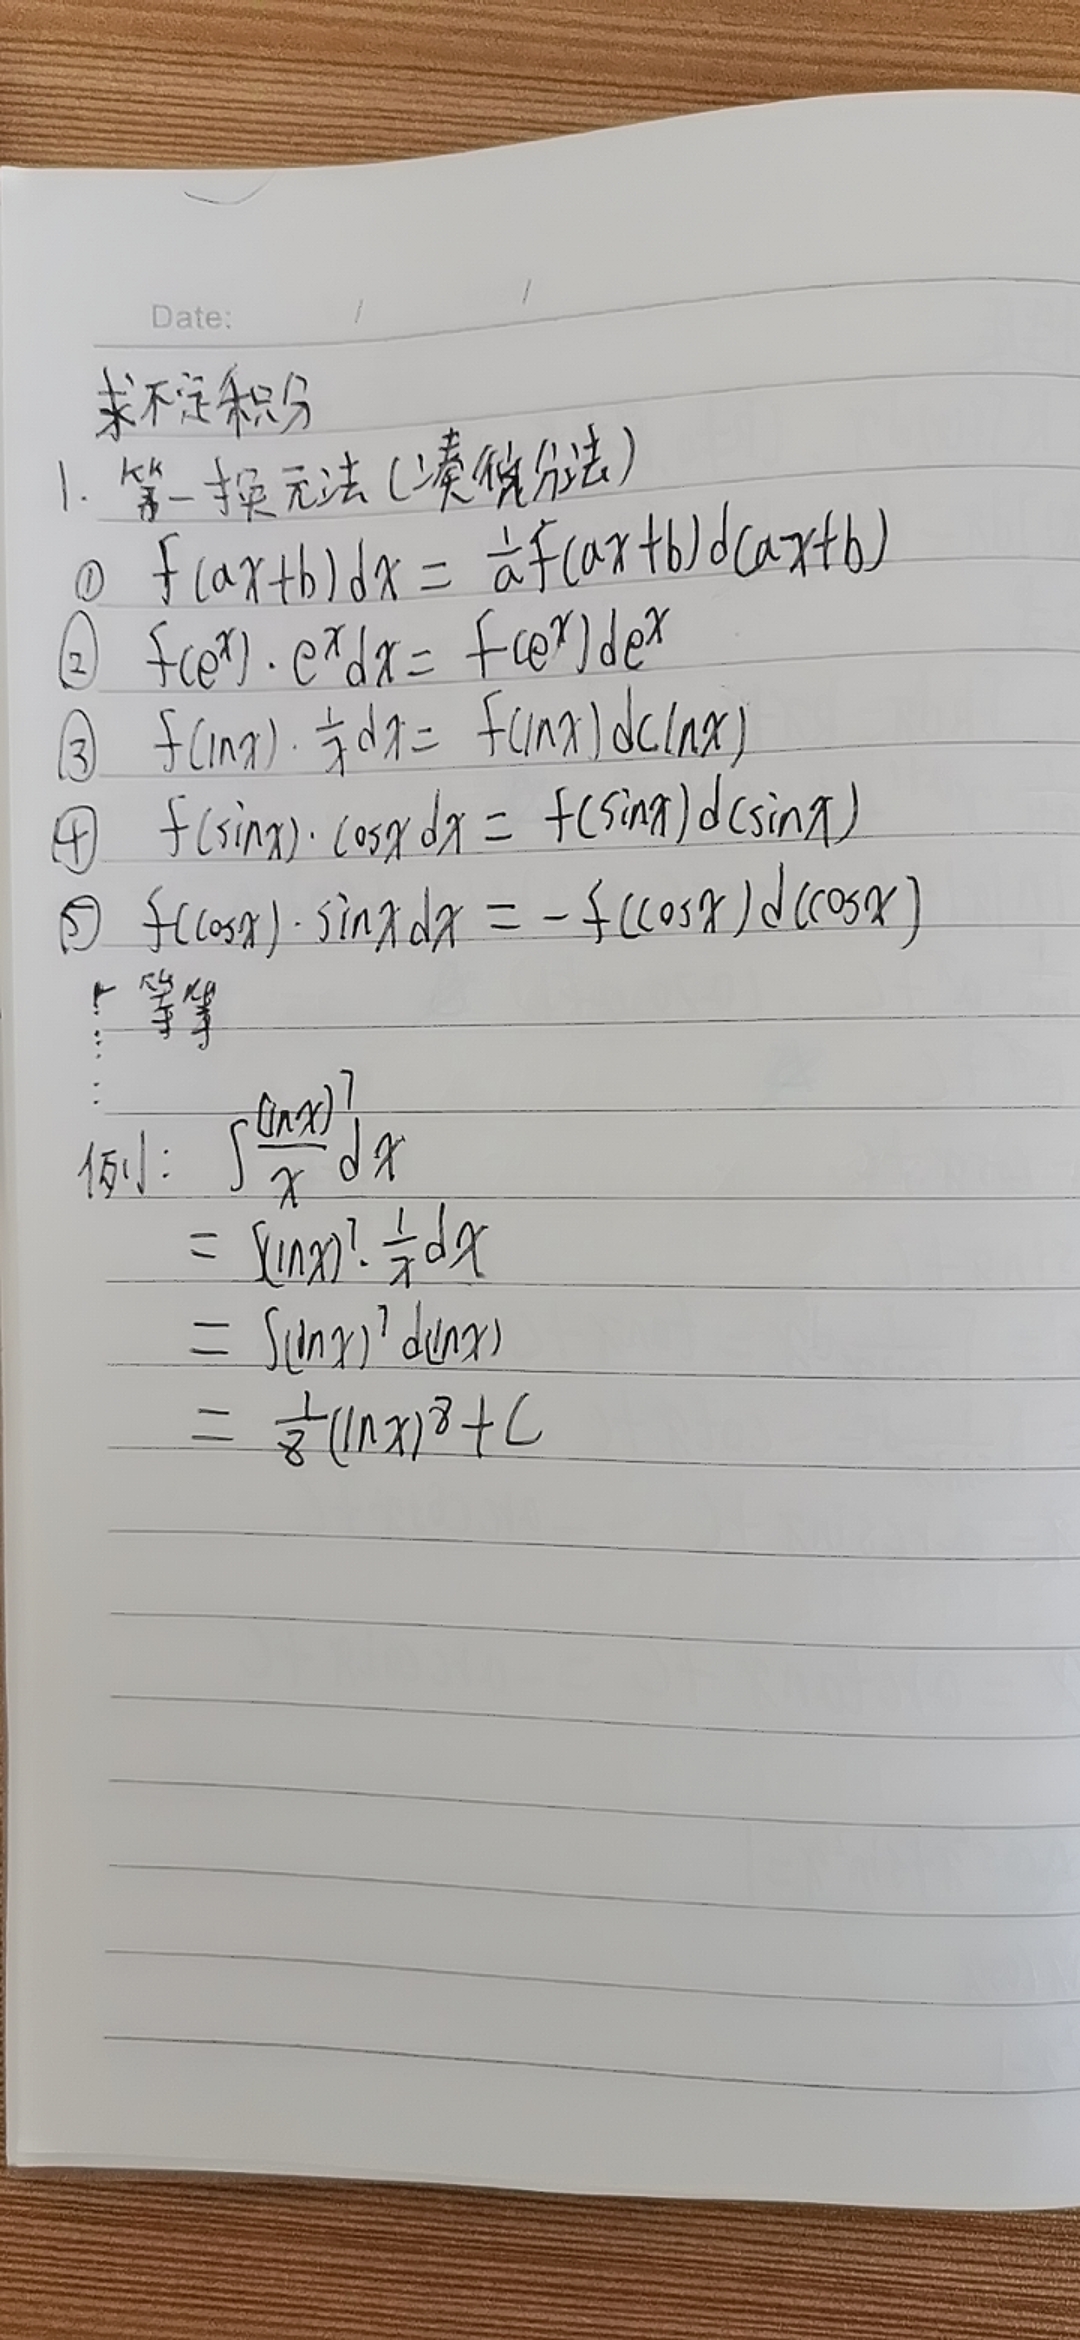 Date: / /
求不定积分
1. 第一换元法(凑微分法)
① f(ax+b)dx = 1/a f(ax+b)d(ax+b)
② f(eˣ)·eˣdx = f(eˣ)deˣ
③ f(lnx)·1/x dx = f(lnx)d(lnx)
④ f(sinx)·cosxdx = f(sinx)d(sinx)
⑤ f(cosx)·sinxdx = -f(cosx)d(cosx)
等等
例: ∫(lnx)⁷/x dx
= ∫(lnx)⁷·1/x dx
= ∫(lnx)⁷d(lnx)
= 1/8(lnx)⁸+C